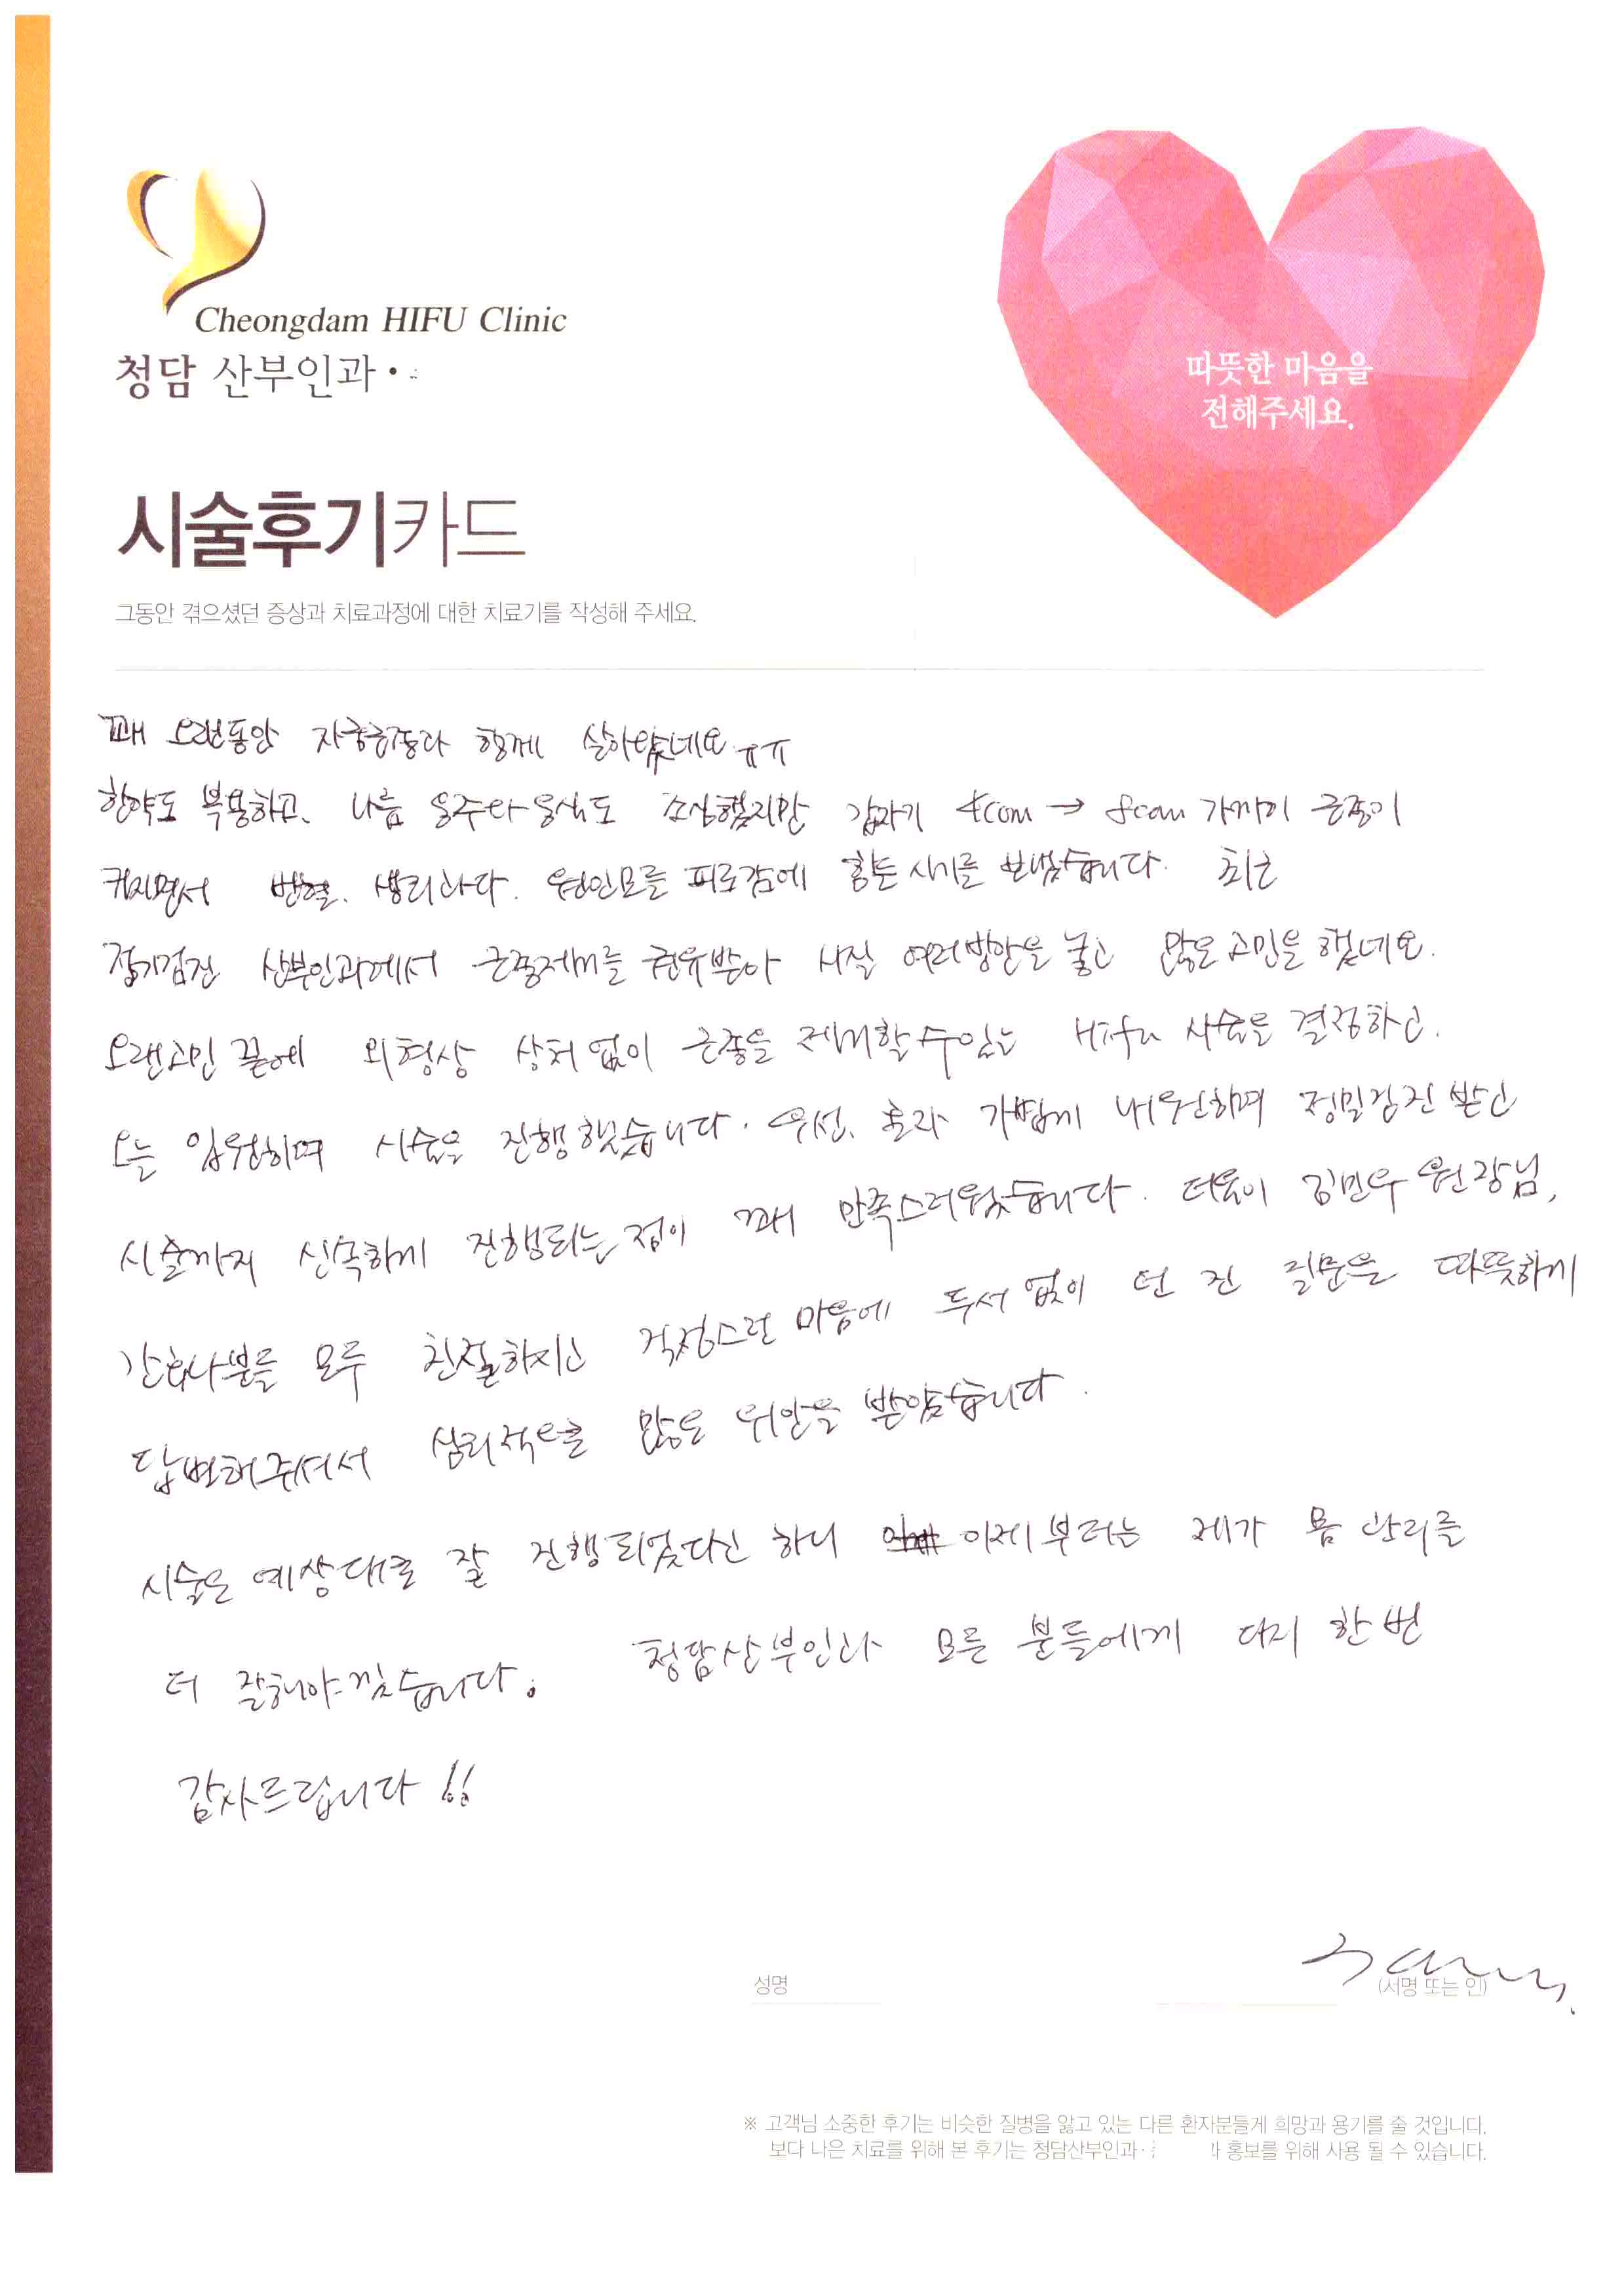 Cheongdam HIFU Clinic
청담 산부인과
따뜻한 마음을
전해주세요.
시술후기카드
그동안 겪으셨던 증상과 치료과정에 대한 치료기를 작성해 주세요.
꽤 오랜동안 자궁근종과 함께 살아왔네요 ㅠㅠ
한약도 복용하고, 나름 음주나 음식도 조심했지만 갑자기 4cm → 8cm 가까이 근종이
커지면서 빈혈, 생리과다, 원인모를 피로감에 힘든 시기를 보냈습니다. 최근
정기검진 산부인과에서 근종제거를 권유받아 사실 여러방안을 놓고 많은 고민을 했네요.
오랜고민 끝에 외형상 상처 없이 근종을 제거할 수 있는 Hifu 시술을 결정하고,
오늘 입원하며 시술을 진행했습니다. 우선, 초진 가볍게 내원하며 정밀검진 받고
시술까지 신속하게 진행되는 점이 꽤 만족스러웠습니다. 더욱이 김민우 원장님,
간호사분들 모두 친절하시고 걱정스런 마음에 두서 없이 던진 질문을 따뜻하게
답변해주셔서 심리적으로 많은 위안을 받았습니다.
시술은 예상대로 잘 진행되었다고 하니 이제부터는 제가 몸 관리를
더 잘해야겠습니다. 청담산부인과 모든 분들에게 다시 한 번
감사드립니다!!
성명
(서명 또는 인)
※ 고객님 소중한 후기는 비슷한 질병을 앓고 있는 다른 환자분들게 희망과 용기를 줄 것입니다.
보다 나은 치료를 위해 본 후기는 청담산부인과· 홍보를 위해 사용 될 수 있습니다.